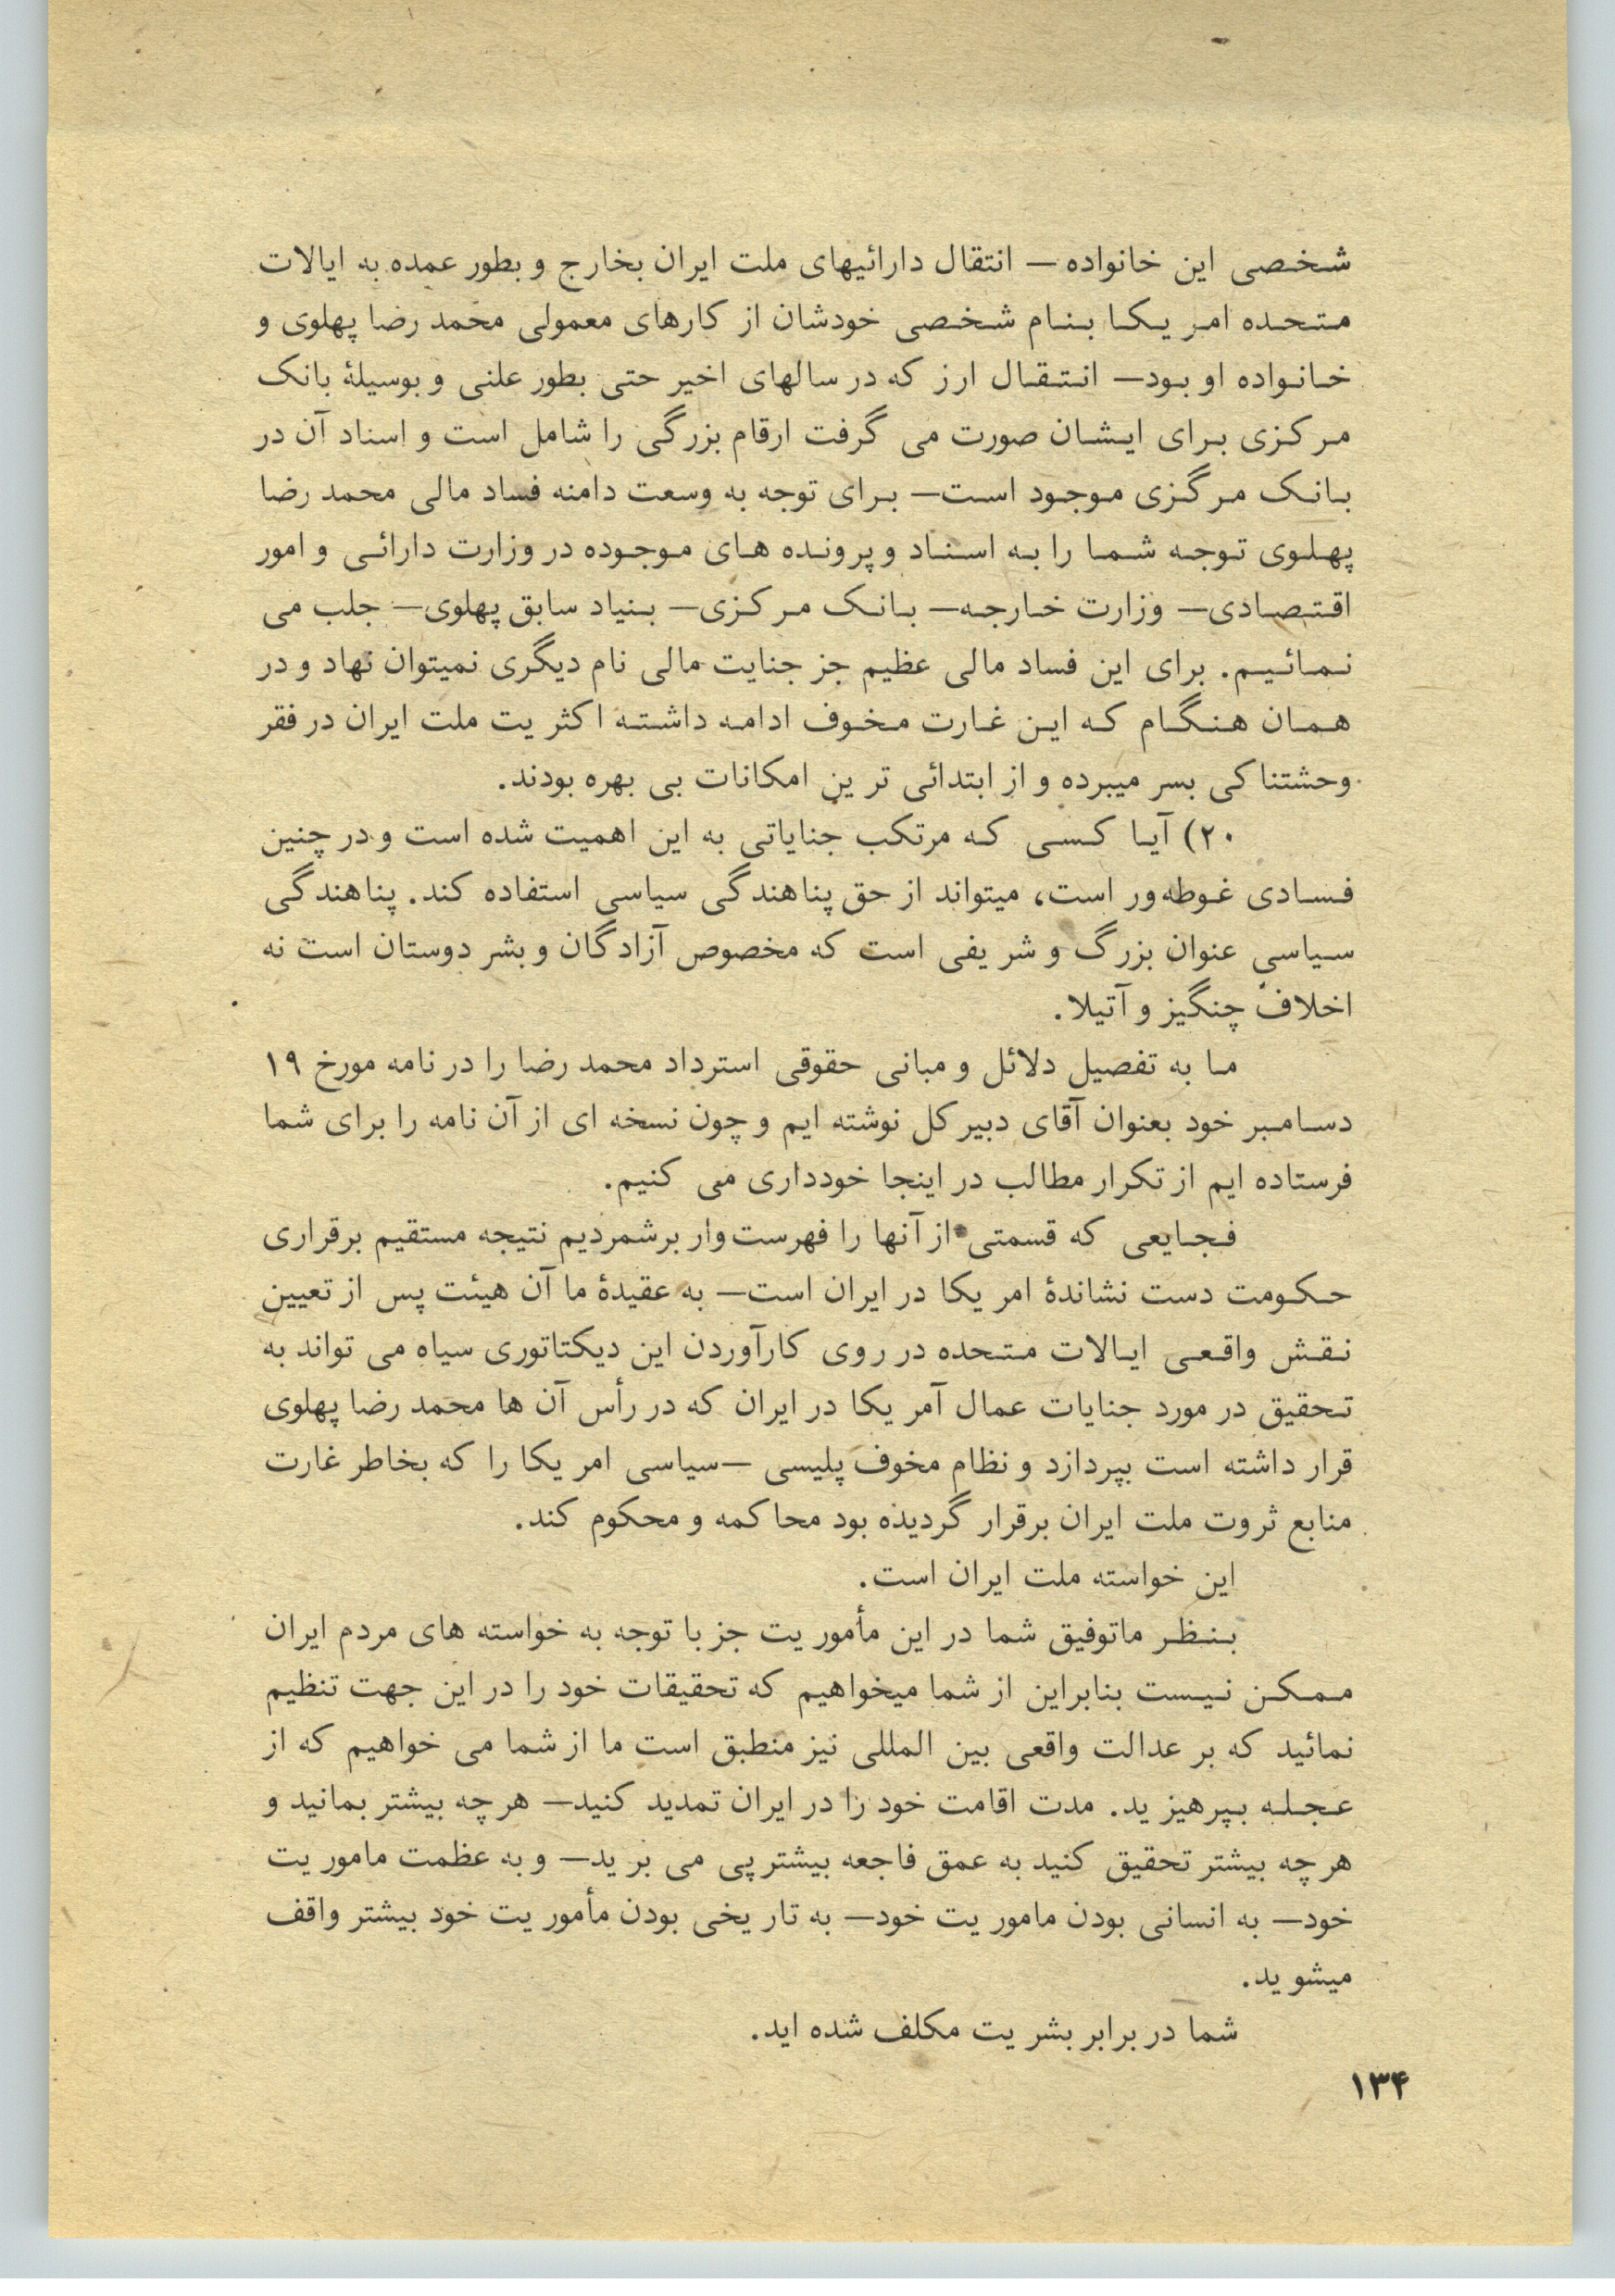 شخصی این خانواده — انتقال دارائیهای ملت ایران بخارج و بطور عمده به ایالات
متحده امریکا بنام شخصی خودشان از کارهای معمولی محمد رضا پهلوی و
خانواده او بود— انتقال ارز که در سالهای اخیر حتی بطور علنی و بوسیلهٔ بانک
مرکزی برای ایشان صورت می گرفت ارقام بزرگی را شامل است و اسناد آن در
بانک مرگزی موجود است— برای توجه به وسعت دامنه فساد مالی محمد رضا
پهلوی توجه شما را به اسناد و پرونده های موجوده در وزارت دارائی و امور
اقتصادی— وزارت خارجه— بانک مرکزی— بنیاد سابق پهلوی— جلب می
نمائیم. برای این فساد مالی عظیم جز جنایت مالی نام دیگری نمیتوان نهاد و در
همان هنگام که این غارت مخوف ادامه داشته اکثریت ملت ایران در فقر
وحشتناکی بسر میبرده و از ابتدائی ترین امکانات بی بهره بودند.
۲۰) آیا کسی که مرتکب جنایاتی به این اهمیت شده است و در چنین
فسادی غوطه‌ور است، میتواند از حق پناهندگی سیاسی استفاده کند. پناهندگی
سیاسی عنوان بزرگ و شریفی است که مخصوص آزادگان و بشر دوستان است نه
اخلاف چنگیز و آتیلا.
ما به تفصیل دلائل و مبانی حقوقی استرداد محمد رضا را در نامه مورخ ۱۹
دسامبر خود بعنوان آقای دبیر کل نوشته ایم و چون نسخه ای از آن نامه را برای شما
فرستاده ایم از تکرار مطالب در اینجا خودداری می کنیم.
فجایعی که قسمتی از آنها را فهرست‌وار برشمردیم نتیجه مستقیم برقراری
حکومت دست نشاندهٔ امریکا در ایران است— به عقیدهٔ ما آن هیئت پس از تعیین
نقش واقعی ایالات متحده در روی کارآوردن این دیکتاتوری سیاه می تواند به
تحقیق در مورد جنایات عمال آمریکا در ایران که در رأس آن ها محمد رضا پهلوی
قرار داشته است بپردازد و نظام مخوف پلیسی —سیاسی امریکا را که بخاطر غارت
منابع ثروت ملت ایران برقرار گردیده بود محاکمه و محکوم کند.
این خواسته ملت ایران است.
بنظر ماتوفیق شما در این مأموریت جز با توجه به خواسته های مردم ایران
ممکن نیست بنابراین از شما میخواهیم که تحقیقات خود را در این جهت تنظیم
نمائید که بر عدالت واقعی بین المللی نیز منطبق است ما از شما می خواهیم که از
عجله بپرهیزید. مدت اقامت خود را در ایران تمدید کنید— هرچه بیشتر بمانید و
هرچه بیشتر تحقیق کنید به عمق فاجعه بیشتر پی می برید— و به عظمت ماموریت
خود— به انسانی بودن ماموریت خود— به تاریخی بودن مأموریت خود بیشتر واقف
میشوید.
شما در برابر بشریت مکلف شده اید.
۱۳۴